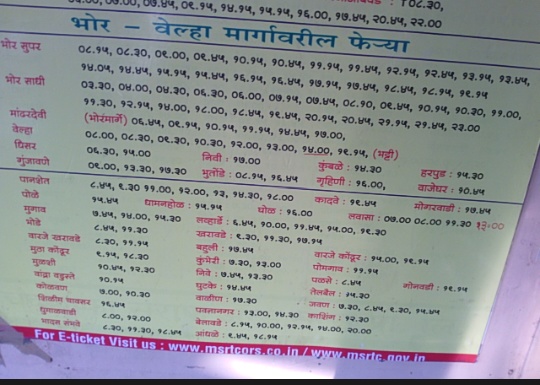 ०६.००, ०७.००, ०७.४५, ०९.१५, १४.१५, १५.१५, १६.००, १७.४५, २०.४५, २२.००
भोर – वेल्हा मार्गावरील फेऱ्या
भोर सुपर ०८.१५, ०८.३०, ०९.००, ०९.४५, १०.१५, १०.४५, ११.१५, ११.४५, १२.१५, १२.४५, १३.१५, १३.४५,
१४.०५, १४.४५, १५.१५, १५.४५, १६.१५, १६.४५, १७.१५, १७.४५, १८.४५, १८.१५, १९.१५
भोर साधी ०३.३०, ०४.००, ०४.३०, ०६.३०, ०६.००, ०७.१५, ०७.४५, ०८.१०, ०९.४५, १०.१५, १०.३०, ११.००,
११.३०, १२.१५, १४.००, १८.००, १८.४५, १९.४५, २०.१५, २०.४५, २१.१५, २१.४५, २३.००
मांढरदेवी (भोरमार्गे) ०६.४५, ०९.१५, १०.१५, ११.१५, १४.४५, १७.००,
वेल्हा ०८.००, ०८.३०, ०९.३०, १०.३०, १२.००, १३.००, १४.००, १९.१५, (भट्टी)
घिसर ०६.३०, १५.०० निवी : १७.०० कुंबळे : १४.३० हरपुड : १५.३०
गुंजावणे ०९.००, १३.३०, १७.३० भुतोंडे : ०८.१५, १६.४५ गृहिणी : १६.००, वाजेघर : १०.४५
पानशेत ८.४५, ९.३० ११.००, १२.००, १३, १४.३०, १८.०० कादवे : १९.४५ मोगरवाडी : १७.४५
पोळे १५.४५ धामनहोळ : १५.१५ घोळ : १६.०० लवासा : ०७.०० ०८.०० ११.३० १३.००
मुगाव ७.४५, १४.००, १५.३० लव्हार्डे : ६.४५, १०.००, ११.४५, १५.००, १९.३०
भोडे ८.४५, ११.३० खरावडे : ९.३०, ११.३०, १७.१५ वारजे कोंढूर : १५.००, १९.१५
वारजे खरावडे ८.३०, ११.१५ बहुली : १७.४५ पोमगाव : ११.१५
मुठा कोंढूर ९.१५, १८.३० कुंभेरी : ७.३०, १३.०० पळसे : ८.४५ गोनवडी : १९.१५
मुळशी १०.४५, १२.३० निवे : ७.४५, १३.३० तैलबैल : १५.३०
१०.१५ घुटके : १४.४५ जवण : ७.३०, ८.४५, ९.३०, १५.१५
कोळवण ७.००, १०.३० वाळीण : १७.३० काशिंग : १२.३०
१६.४५ पवनानगर : १३.००, १४.३०
८.००, १२.०० बेलावडे : ८.१५, १०.००, १२.१५, १४.००, २०.००
८.३०, ११.३०, १८.४५ आंधळे : ९.४५, १८.१५
For E-ticket Visit us : www.msrtcors.co.in / www.msrtc.gov.in